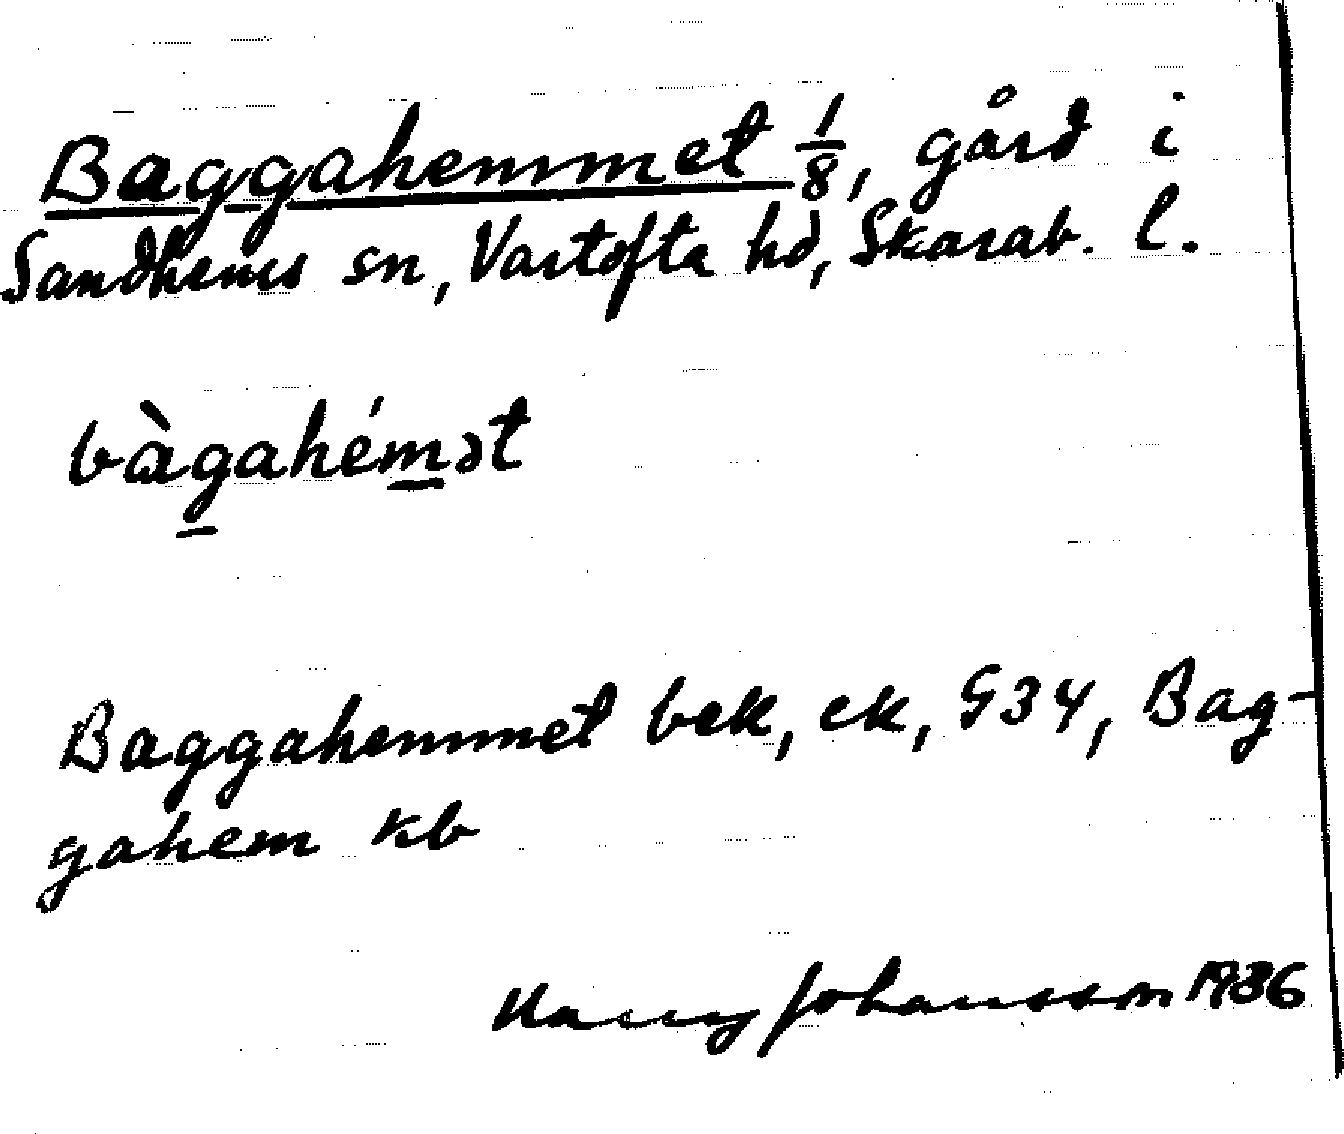 Baggahemmet 1/8, gård i
Sandhems sn, Vartofta hd, Skarab. l.
bàg̲ahém̲ət
Baggahemmet bek, ek, G34, Bag-
gahem kb
Johansson 1936